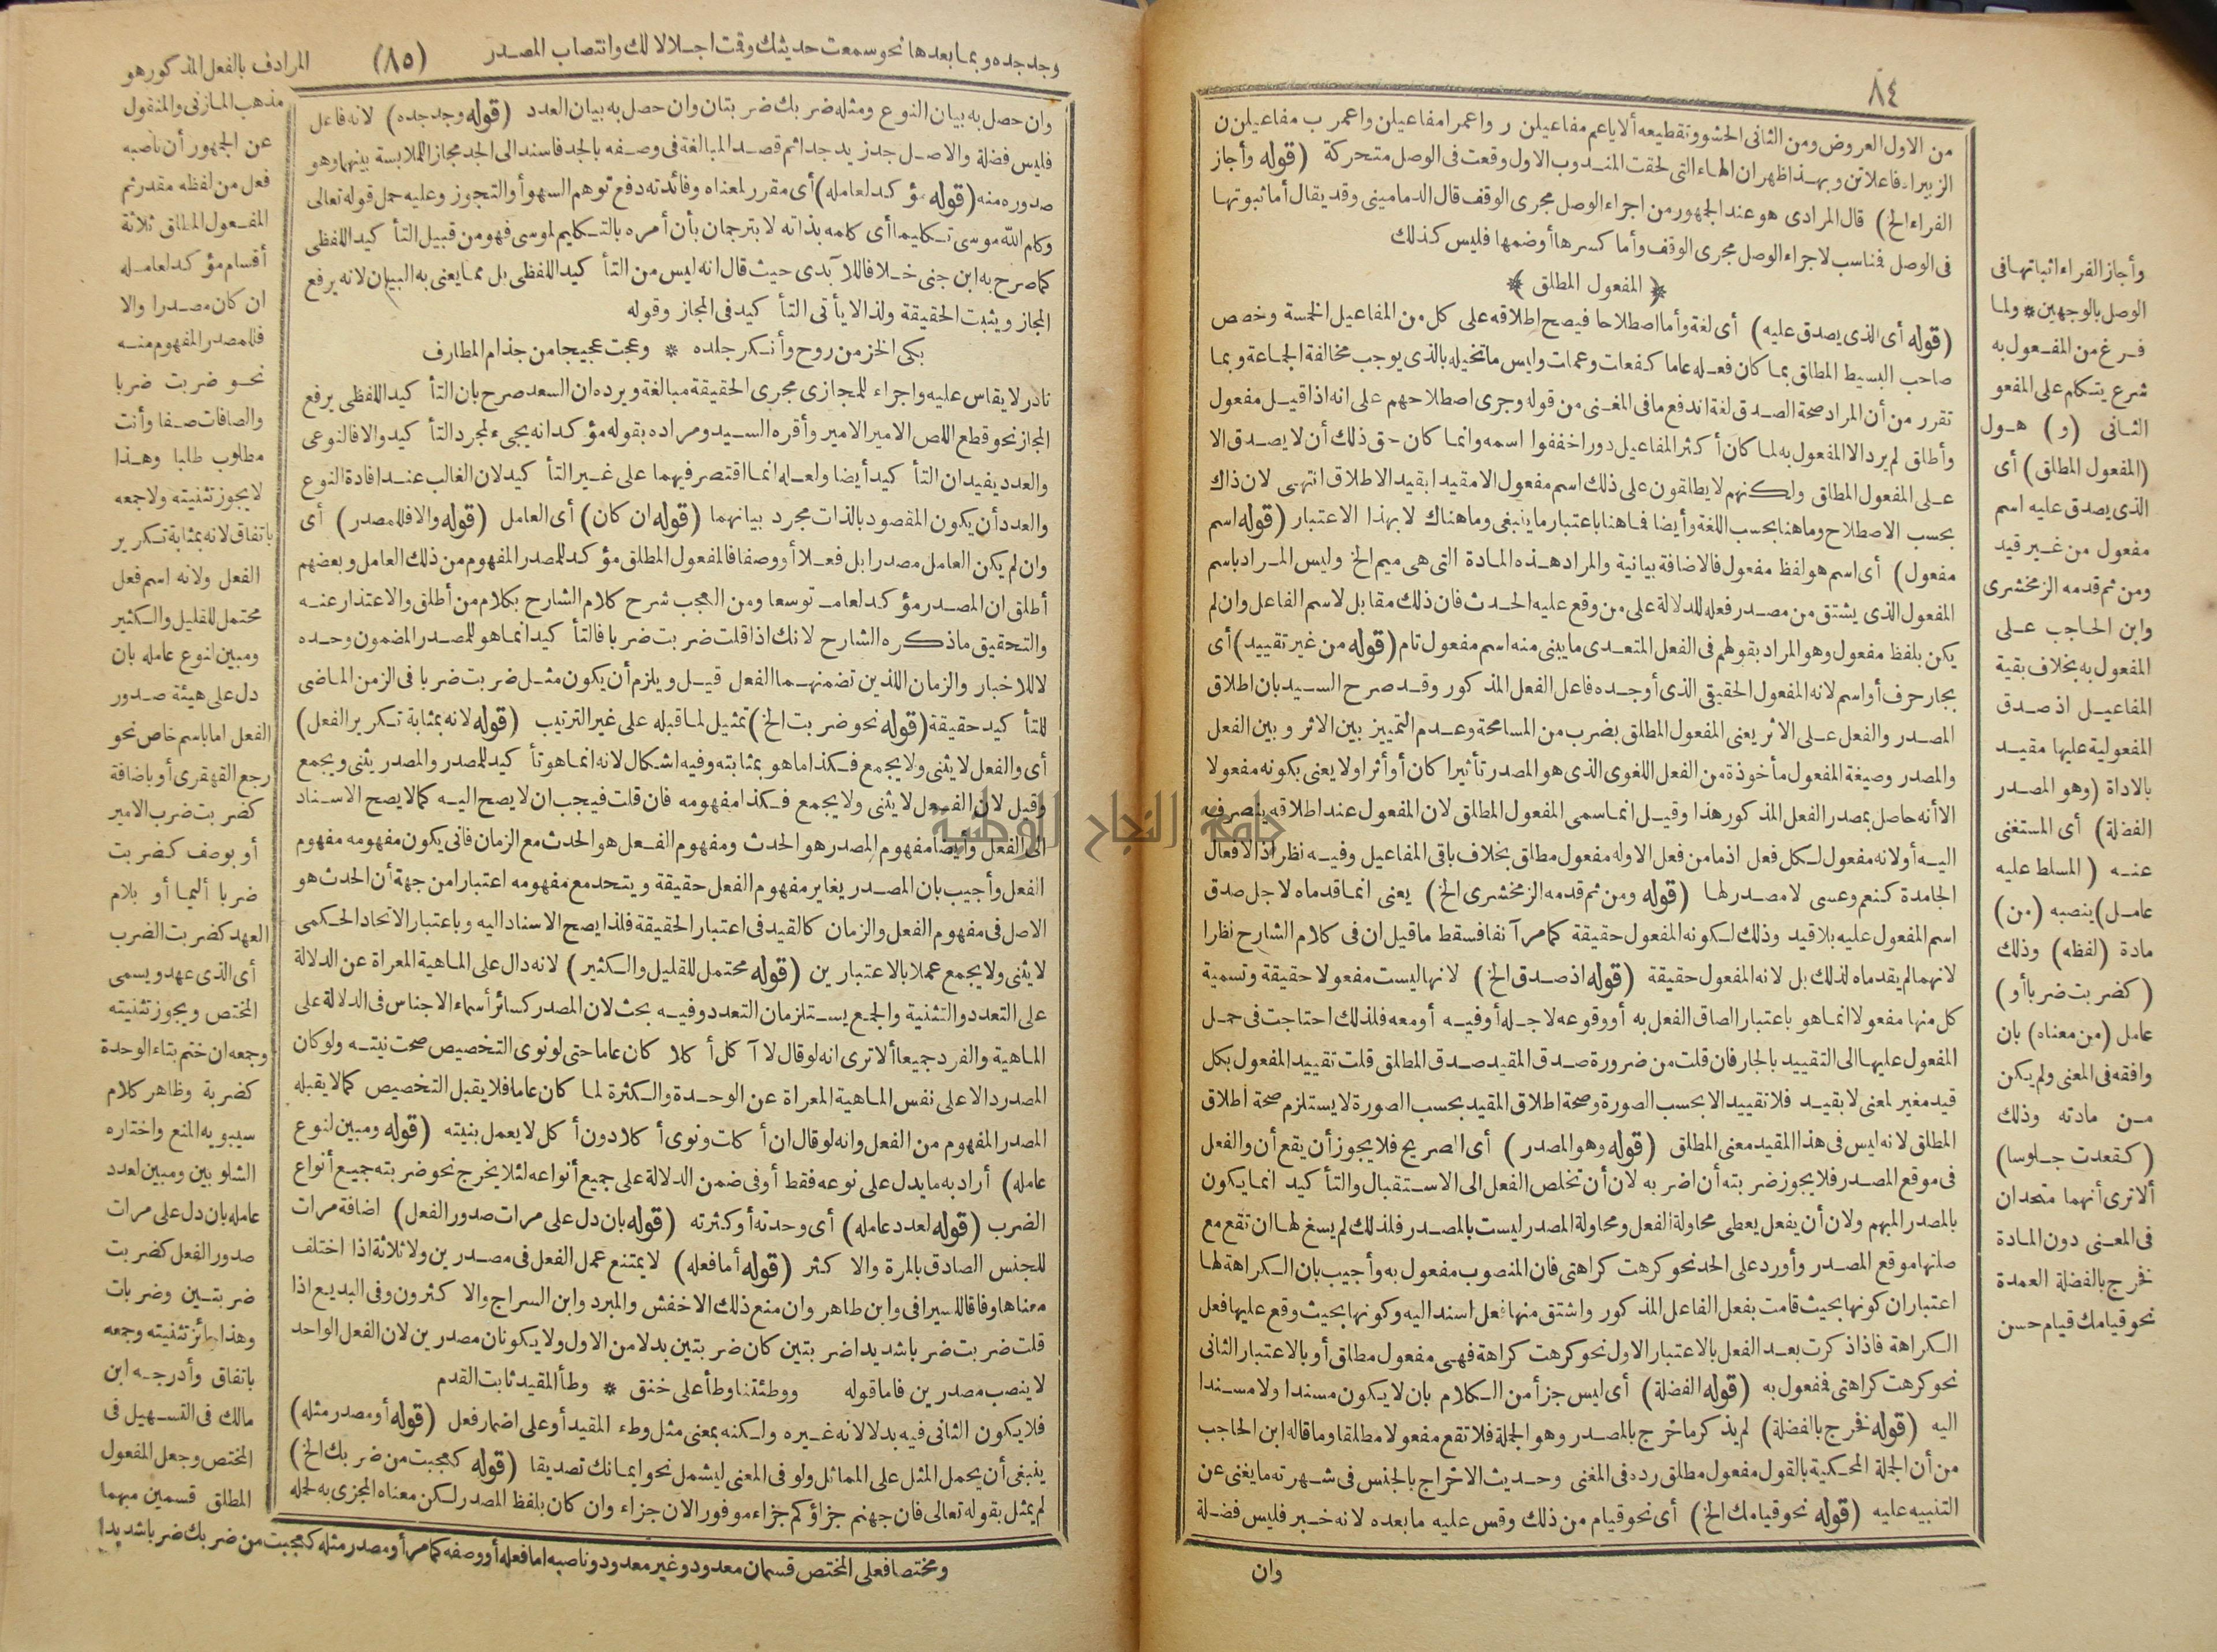 ٨٤
من الاول العروض ومن الثانى الحشو وتقطيعه ألا ياعم مفاعيلن ر واعمرا مفاعيلن واعمر ب مفاعيلن ن
الزبيراه فاعلاتن وبهذا ظهر ان الهاء التى لحقت المندوب الاول وقعت فى الوصل متحركة (قوله وأجاز
الفراء الخ) قال المرادى هو عند الجمهور من اجراء الوصل مجرى الوقف قال الدمامينى وقد يقال أما ثبوتها
فى الوصل فمناسب لاجراء الوصل مجرى الوقف وأما كسرها أو ضمها فليس كذلك
﴿ المفعول المطلق ﴾
(قوله أى الذى يصدق عليه) أى لغة وأما اصطلاحا فيصح اطلاقه على كل من المفاعيل الخمسة وخصص
صاحب البسيط المطلق بما كان فعله عاما كفعلت وعملت وليس ما تخيله بالذى يوجب مخالفة الجماعة وبما
تقرر من أن المراد صحة الصدق لغة اندفع ما فى المغنى من قوله وجرى اصطلاحهم على انه اذا قيل مفعول
وأطلق لم يرد الا المفعول به لما كان أكثر المفاعيل دورا خففوا اسمه وانما كان حق ذلك أن لا يصدق الا
على المفعول المطلق ولكنهم لا يطلقون على ذلك اسم مفعول الا مقيدا بقيد الاطلاق انتهى لان ذاك
بحسب الاصطلاح وما هنا بحسب اللغة وأيضا فما هنا باعتبار ما ينبغى وما هناك لا بهذا الاعتبار (قوله اسم
مفعول) أى اسم هو لفظ مفعول فالاضافة بيانية والمراد هذه المادة التى هى ميم الخ وليس المراد باسم
المفعول الذى يشتق من مصدر فعله للدلالة على من وقع عليه الحدث فان ذلك مقابل لاسم الفاعل وان لم
يكن بلفظ مفعول وهو المراد بقولهم فى الفعل المتعدى ما يبنى منه اسم مفعول تام (قوله من غير تقييد) أى
بجار حرف أو اسم لانه المفعول الحقيقى الذى أوجده فاعل الفعل المذكور وقد صرح السيد بان اطلاق
المصدر والفعل على الاثر يعنى المفعول المطلق بضرب من المسامحة وعدم التمييز بين الاثر و بين الفعل
والمصدر وصيغة المفعول مأخوذة من الفعل اللغوى الذى هو المصدر تأثيرا كان أو أثرا ولا يعنى بكونه مفعولا
الا أنه حاصل بمصدر الفعل المذكور هذا وقيل انما سمى المفعول المطلق لان المفعول عند اطلاقه ينصرف
اليه أو لانه مفعول لكل فعل اذ ما من فعل الا وله مفعول مطلق بخلاف باقى المفاعيل وفيه نظر اذ الافعال
الجامدة كنعم وعسى لا مصدر لها (قوله ومن ثم قدمه الزمخشرى الخ) يعنى انما قدماه لاجل صدق
اسم المفعول عليه بلا قيد وذلك لكونه المفعول حقيقة كما مر آنفا فسقط ما قيل ان فى كلام الشارح نظرا
لانهما لم يقدماه لذلك بل لانه المفعول حقيقة (قوله اذ صدق الخ) لانها ليست مفعولا حقيقة وتسمية
كل منها مفعولا انما هو باعتبار الصاق الفعل به أو وقوعه لاجله أو فيه أو معه فلذلك احتاجت فى حمل
المفعول عليها الى التقييد بالجار فان قلت من ضرورة صدق المقيد صدق المطلق قلت تقييد المفعول بكل
قيد مغير لمعنى لا بقيد فلا تقييد الا بحسب الصورة وصحة اطلاق المقيد بحسب الصورة لا يستلزم صحة اطلاق
المطلق لانه ليس فى هذا المقيد معنى المطلق (قوله وهو المصدر) أى الصريح فلا يجوز أن يقع أن والفعل
فى موقع المصدر فلا يجوز ضربته أن اضربه لان أن تخلص الفعل الى الاستقبال والتأكيد انما يكون
بالمصدر المبهم ولان أن يفعل يعطى محاولة الفعل ومحاولة المصدر ليست بالمصدر فلذلك لم يسغ لها ان تقع مع
صلتها موقع المصدر وأورد على الحد نحو كرهت كراهتى فان المنصوب مفعول به وأجيب بان الكراهة لها
اعتباران كونها بحيث قامت بفعل الفاعل المذكور واشتق منها فعل اسند اليه وكونها بحيث وقع عليها فعل
الكراهة فاذا ذكرت بعد الفعل بالاعتبار الاول نحو كرهت كراهة فهى مفعول مطلق أو بالاعتبار الثانى
نحو كرهت كراهتى فمفعول به (قوله الفضلة) أى ليس جزأ من الكلام بان لا يكون مسندا ولا مسندا
اليه (قوله فخرج بالفضلة) لم يذكر ما خرج بالمصدر وهو الجملة فلا تقع مفعولا مطلقا وما قاله ابن الحاجب
من أن الجملة المحكية بالقول مفعول مطلق رده فى المغنى وحديث الاخراج بالجنس فى شهرته ما يغنى عن
التنبيه عليه (قوله نحو قيامك الخ) أى نحو قيام من ذلك وقس عليه ما بعده لانه خبر فليس فضلة
وان
وأجاز الفراء اثباتها فى
الوصل بالوجهين * ولما
فرغ من المفعول به
شرع يتكلم على المفعو
الثانى (و) هو ل
(المفعول المطلق) أى
الذى يصدق عليه اسم
مفعول من غير قيد
ومن ثم قدمه الزمخشرى
وابن الحاجب على
المفعول به بخلاف بقية
المفاعيل اذ صدق
المفعولية عليها مقيد
بالاداة (وهو المصدر
الفضلة) أى المستغنى
عنه (المسلط عليه
عامل) ينصبه (من)
مادة (لفظه) وذلك
(كضربت ضربا أو)
عامل (من معناه) بان
وافقه فى المعنى ولم يكن
من مادته وذلك
(كقعدت جلوسا)
ألا ترى أنهما متحدان
فى المعنى دون المادة
فخرج بالفضلة العمدة
نحو قيامك قيام حسن
وجد جده وبما بعدها نحو سمعت حديثك وقت اجلالا لك وانتصاب المصدر (٨٥) المرادف بالفعل المذكور هو
وان حصل به بيان النوع ومثله ضربك ضربتان وان حصل به بيان العدد (قوله وجد جده) لانه فاعل
فليس فضلة والاصل جد زيد جدا ثم قصد المبالغة فى وصفه بالجد فاسند الى الجد مجازا للملابسة بينهما وهو
صدوره منه (قوله مؤكد لعامله) أى مقرر لمعناه وفائدته دفع توهم السهو أو التجوز وعليه حمل قوله تعالى
وكلم الله موسى تكليما أى كلمه بذاته لا بترجمان بأن أمره بالتكليم لموسى فهو من قبيل التأكيد اللفظى
كما صرح به ابن جنى خلافا للآبدى حيث قال انه ليس من التأكيد اللفظى بل مما يعنى به البيان لانه يرفع
المجاز ويثبت الحقيقة ولذا لا يأتى التأكيد فى المجاز وقوله
بكى الخز من روح وأنكر جلده * وعجت عجيجا من جذام المطارف
نادر لا يقاس عليه واجراء للمجازى مجرى الحقيقة مبالغة ويرده ان السعد صرح بان التأكيد اللفظى يرفع
المجاز نحو قطع اللص الامير الامير وأقره السيد ومراده بقوله مؤكد انه يجىء لمجرد التأكيد والا فالنوعى
والعدد يفيدان التأكيد أيضا ولعله انما اقتصر فيهما على غير التأكيد لان الغالب عند افادة النوع
والعدد أن يكون المقصود بالذات مجرد بيانهما (قوله ان كان) أى العامل (قوله والا فللمصدر) أى
وان لم يكن العامل مصدرا بل فعلا أو وصفا فالمفعول المطلق مؤكد للمصدر المفهوم من ذلك العامل وبعضهم
أطلق ان المصدر مؤكد لعامله توسعا ومن العجب شرح كلام الشارح بكلام من أطلق والاعتذار عنه
والتحقيق ما ذكره الشارح لانك اذا قلت ضربت ضربا فالتأكيد انما هو للمصدر المضمون وحده
لا للاخبار والزمان اللذين تضمنهما الفعل قيل ويلزم أن يكون مثل ضربت ضربا فى الزمن الماضى
للتأكيد حقيقة (قوله نحو ضربت الخ) تمثيل لما قبله على غير الترتيب (قوله لانه بمثابة تكرير الفعل)
أى والفعل لا يثنى ولا يجمع فكذا ما هو بمثابته وفيه اشكال لانه انما هو تأكيد للمصدر والمصدر يثنى ويجمع
وقيل لان الفعل لا يثنى ولا يجمع فكذا مفهومه فان قلت فيجب ان لا يصح اليه كما لا يصح الاسناد
الى الفعل وأيضا مفهوم المصدر هو الحدث ومفهوم الفعل هو الحدث مع الزمان فانى يكون مفهومه مفهوم
الفعل وأجيب بان المصدر يغاير مفهوم الفعل حقيقة ويتحد مع مفهومه اعتبارا من جهة أن الحدث هو
الاصل فى مفهوم الفعل والزمان كالقيد فى اعتبار الحقيقة فلذا يصح الاسناد اليه وباعتبار الاتحاد الحكمى
لا يثنى ولا يجمع عملا بالاعتبارين (قوله محتمل للقليل والكثير) لانه دال على الماهية المعراة عن الدلالة
على التعدد والتثنية والجمع يستلزمان التعدد وفيه بحث لان المصدر كسائر أسماء الاجناس فى الدلالة على
الماهية والفرد جميعا ألا ترى انه لو قال لا آكل أكلا كان عاما حتى لو نوى التخصيص صحت نيته ولو كان
المصدر دالا على نفس الماهية المعراة عن الوحدة والكثرة لما كان عاما فلا يقبل التخصيص كما لا يقبله
المصدر المفهوم من الفعل وانه لو قال ان أكلت ونوى أكلا دون أكل لا يعمل بنيته (قوله ومبين لنوع
عامله) أراد به ما يدل على نوعه فقط أو فى ضمن الدلالة على جميع أنواعه لئلا يخرج نحو ضربته جميع أنواع
الضرب (قوله لعدد عامله) أى وحدته أو كثرته (قوله بان دل على مرات صدور الفعل) اضافة مرات
للجنس الصادق بالمرة والاكثر (قوله أما فعله) لا يمتنع عمل الفعل فى مصدرين ولا ثلاثة اذا اختلف
معناها وفاقا للسيرافى وابن طاهر وان منع ذلك الاخفش والمبرد وابن السراج والاكثرون وفى البديع اذا
قلت ضربت ضربا شديدا ضربتين كان ضربتين بدلا من الاول ولا يكونان مصدرين لان الفعل الواحد
لا ينصب مصدرين فاما قوله ووطئتنا وطأ على خنق * وطأ المقيد ثابت القدم
فلا يكون الثانى فيه بدلا لانه غيره ولكنه بمعنى مثل وطء المقيد أو على اضمار فعل (قوله أو مصدر مثله)
ينبغى أن يحمل المثل على المماثل ولو فى المعنى ليشمل نحو ايمانك تصديقا (قوله كعجبت من ضربك الخ)
لم يمثل بقوله تعالى فان جهنم جزاؤكم جزاء موفورا لان جزاء وان كان بلفظ المصدر لكن معناه المجزى به لحمله
مذهب المازنى والمنقول
عن الجمهور أن ناصبه
فعل من لفظه مقدر ثم
المفعول المطلق ثلاثة
أقسام مؤكد لعامله
ان كان مصدرا والا
فللمصدر المفهوم منه
نحو ضربت ضربا
والصافات صفا وأنت
مطلوب طلبا وهذا
لا يجوز تثنيته ولا جمعه
باتفاق لانه بمثابة تكرير
الفعل ولانه اسم فعل
محتمل للقليل والكثير
ومبين لنوع عامله بان
دل على هيئة صدور
الفعل اما باسم خاص نحو
رجع القهقرى أو باضافة
كضربت ضرب الامير
أو بوصف كضربت
ضربا أليما أو بلام
العهد كضربت الضرب
أى الذى عهد ويسمى
المختص ويجوز تثنيته
وجمعه ان ختم بتاء الوحدة
كضربة وظاهر كلام
سيبويه المنع واختاره
الشلوبين ومبين لعدد
عامله بان دل على مرات
صدور الفعل كضربت
ضربتين وضربات
وهذا جائز تثنيته وجمعه
باتفاق وأدرجه ابن
مالك فى التسهيل فى
المختص وجعل المفعول
المطلق قسمين مبهما
ومختصا فعلى المختص قسمان معدود وغير معدود وناصبه اما فعله أو وصفه كما مر أو مصدر مثله كعجبت من ضربك ضربا شديدا
جامعة النجاح الوطنية